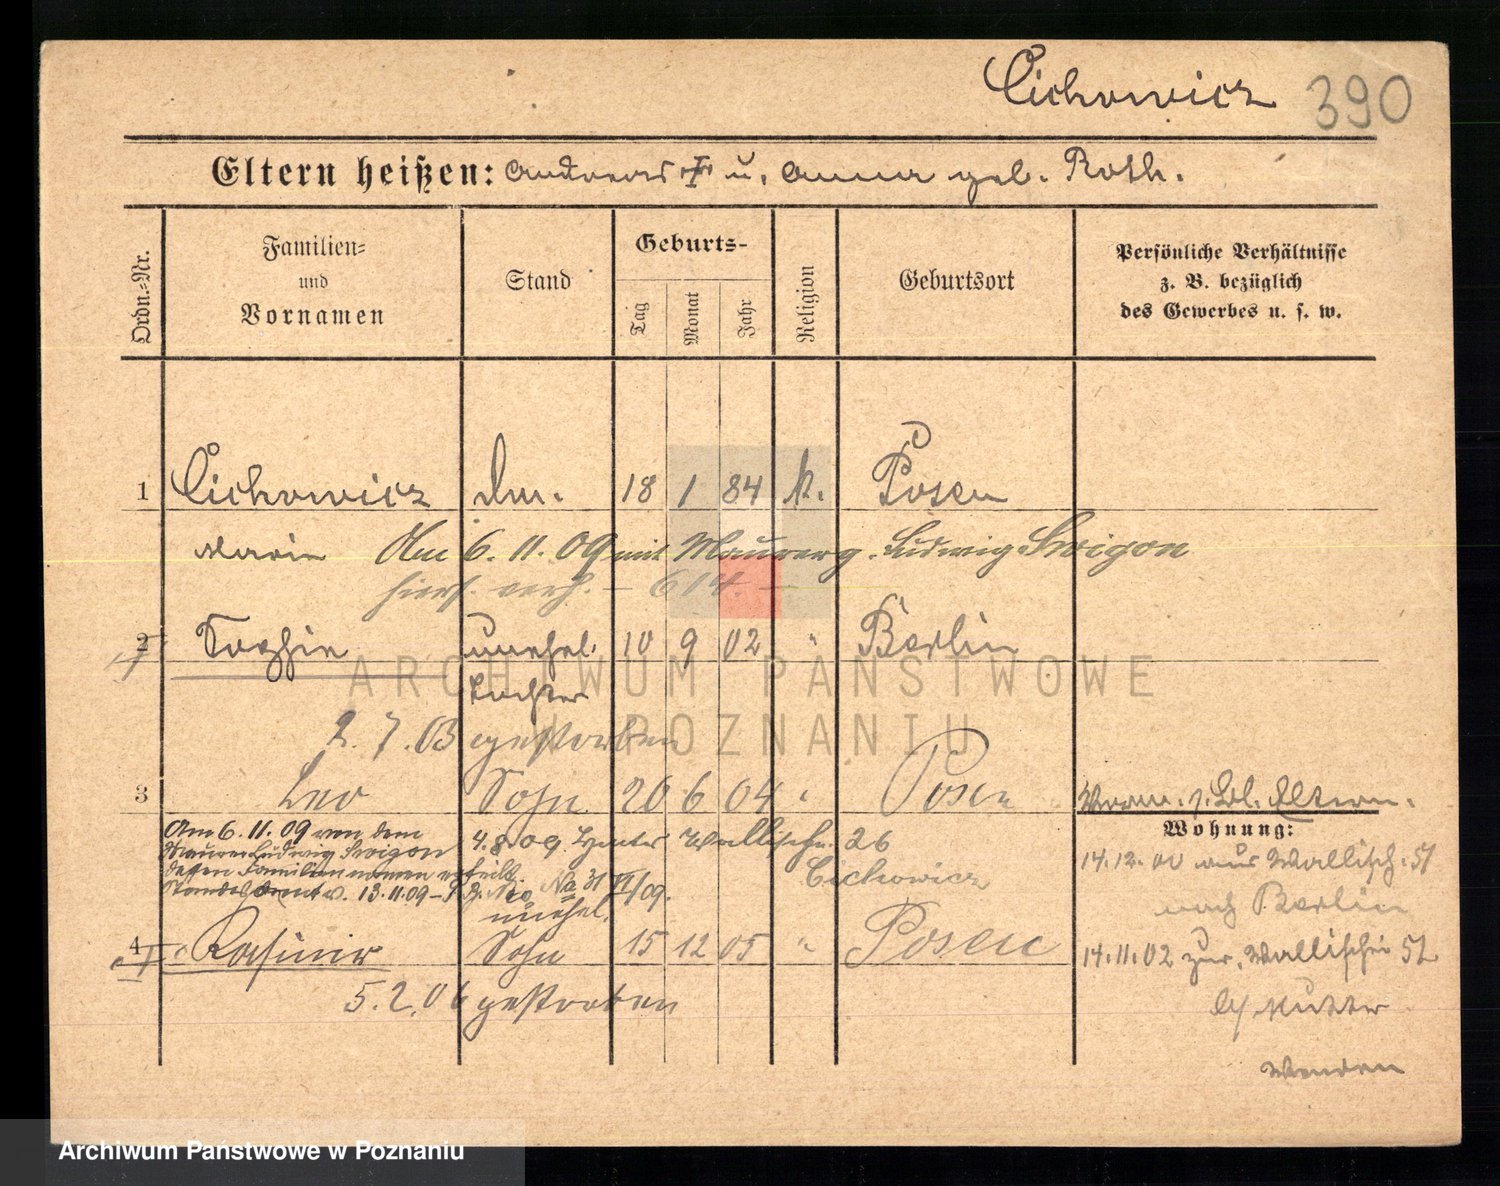 Cichowicz 390
Eltern heißen: Andreas † u. Anna geb. Roth.
Ordn.-Nr.
Familien-
und
Vornamen
Stand
Geburts-
Tag
Monat
Jahr
Religion
Geburtsort
Persönliche Verhältnisse
z. B. bezüglich
des Gewerbes u. s. w.
1 Cichowicz 18 1 84 k. Posen
Marie Am 6. 11. 09 mit Maurerg. Ludwig Swigon
hiers. verh. – 614. –
2 Sophie unehel. 10 9 02 " Berlin
Tochter
2. 7. 03 gestorben
3 Leo Sohn 20 6 04 " Posen
Am 6. 11. 09 von dem
Maurer Ludwig Swigon
dessen Familiennamen erteilt.
Standesamt v. 13.11.09
4. 8 09. Hinter Wallischei 26
Cichowicz
No 31 VI/09.
unehel.
4 Kasimir Sohn 15 12 05 " Posen
5. 2. 06 gestorben
Vorm. s. Bl. Eltern.
Wohnung:
14. 12. 00 aus Wallisch. 51
nach Berlin
14. 11. 02 zur. Wallischei 52
b/ Mutter
Wenden
ARCHIWUM PAŃSTWOWE
W POZNANIU
Archiwum Państwowe w Poznaniu